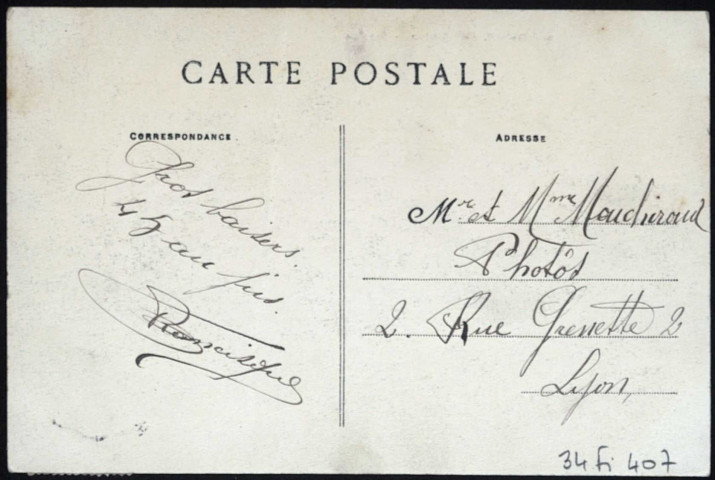 CARTE POSTALE
CORRESPONDANCE.
baisers.
45 au jus.
Francisque
ADRESSE
Mr et Mme Maudiraud
Photos
2. Rue Grenette 2
Lyon
34 Fi 407